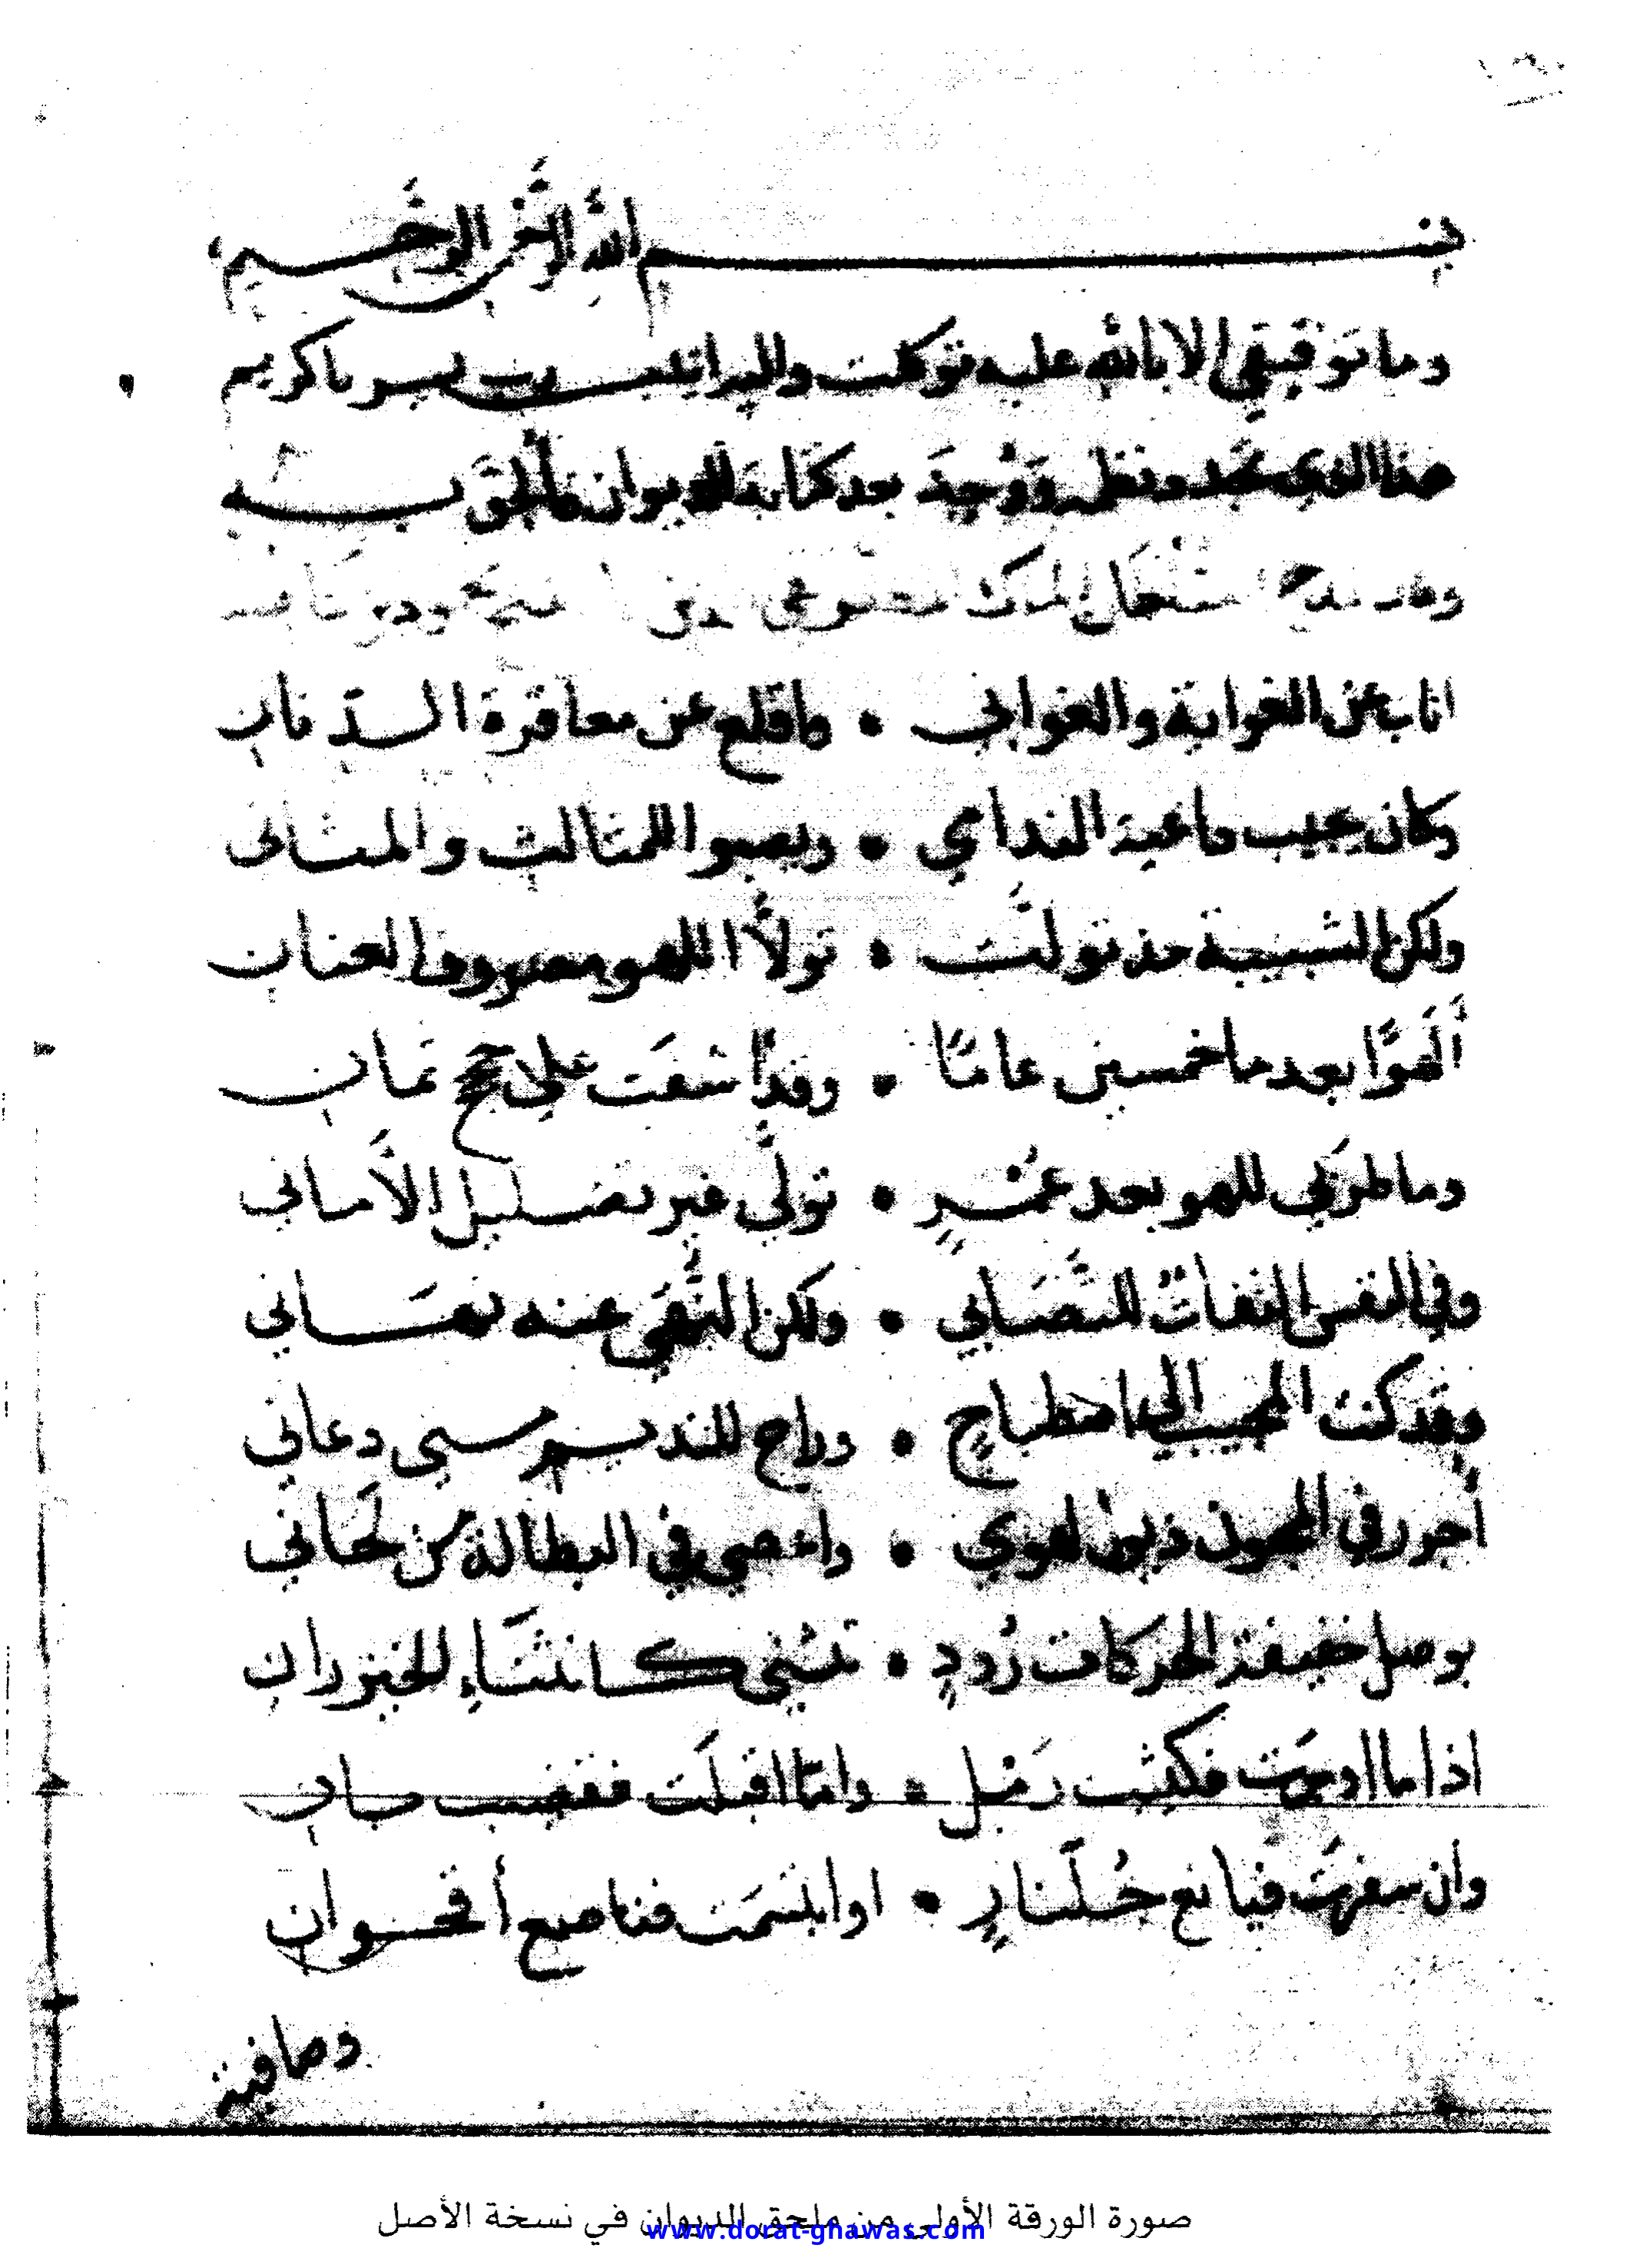 بسم الله الرحمن الرحيم
وما توفيقي الا بالله عليه توكلت واليه انيب رب يسر ياكريم
هذا الذي تجدد نظمه ووجد بعد كتابة الديوان فألحق به
وقال يمدح
اناب عن الغواية والغواني • واقلع عن معاقرة الدنان
وكان يجيب داعية الندامي • ويصبوا للمثالث والمثاني
ولكن الشبيبة مذ تولت • تولا اللهو مصروف العنان
ألهوا بعد ما خمسين عاما • وقد اشفت على حجج ثمان
وما طربي للهو بعد عمر • تولى غير تضليل الأماني
وفي النفس التفات للتصابي • ولكن التقى عنه نهاني
وقد كنت المجيب الى اصطباح • وراح للنديم متى دعاني
أجرر في المجون ذيول لهوي • واعصي في البطالة من لحاني
بوصل خفيفة الحركات رود • تثنى كانثناء الخيزران
اذا ما ادبرت فكثيب رمل • واما اقبلت فقضيب بان
وان سفرت فيانع جلنار • او ابتسمت فناصع أقحوان
وصافية
صورة الورقة الأولى من ملحق للديوان في نسخة الأصل
www.dorat-ghawas.com